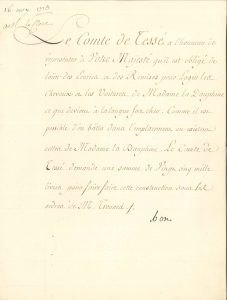 Le Comte de Tessé a l'honneur de
representer à Votre Majesté qu'il est obligé de
louer des Ecuries et des Remises pour loger les
chevaux et les Voitures de Madame la Dauphine
ce qui devient à la longue fort cher. Comme il est
possible d'en bâtir dans l'emplacement
de Madame la Dauphine. Le Comte de
Tessé demande une somme de Vingt cinq mille
livres pour faire faire cette construction sous les
ordres de M.
bon